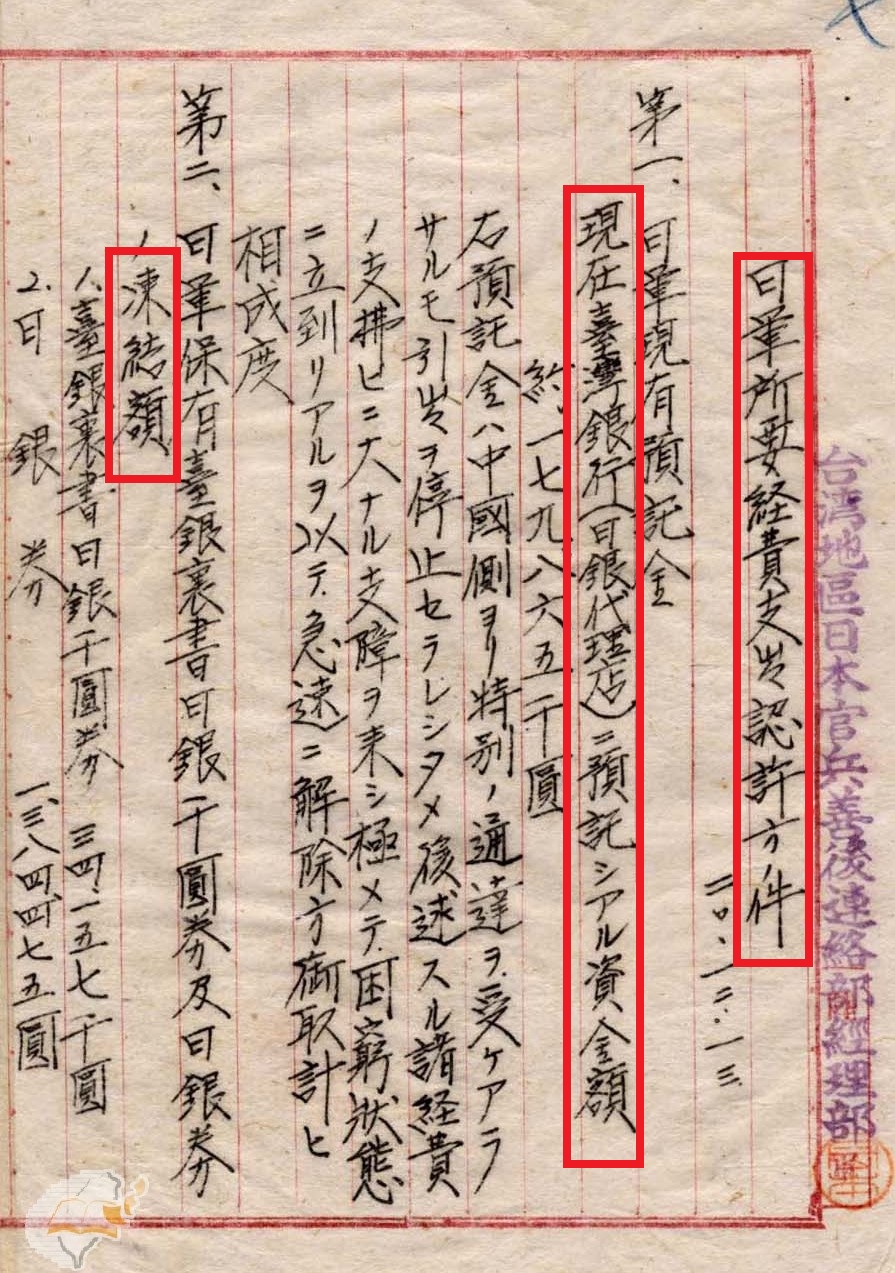 台湾地區日本官兵善後連絡部經理部
日軍所要経費支出認許方ノ件
二〇、一二、一三
第一、日軍現有預託金
現在臺灣銀行(日銀代理店)ニ預託シアル資金額
約、一七九八六五千圓
右預託金ハ中國側ヨリ特別ノ通達ヲ受ケアラ
サルモ引出ヲ停止セラレシタメ後述スル諸経費
ノ支拂ヒニ大ナル支障ヲ来シ極メテ困窮狀態
ニ立到リアルヲ以テ急速ニ解除方御取計ヒ
相成度
第二、日軍保有臺銀裏書日銀千圓券及日銀券
ノ凍結額
1、臺銀裏書日銀千圓券 三四、一五七千圓
2、日銀券 一、三八四、四七五圓